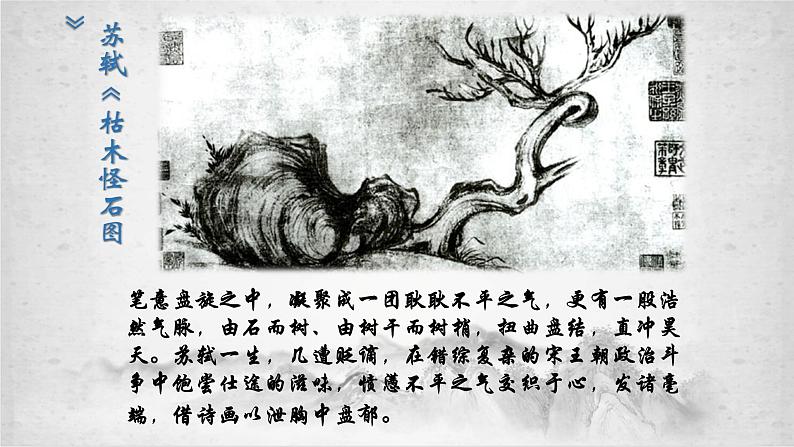 苏轼《枯木怪石图》
笔意盘旋之中，凝聚成一团耿耿不平之气，更有一股浩
然气脉，由石而树、由树干而树梢，扭曲盘结，直冲昊
天。苏轼一生，几遭贬谪，在错综复杂的宋王朝政治斗
争中饱尝仕途的滋味，愤懑不平之气交织于心，发诸毫
端，借诗画以泄胸中盘郁。